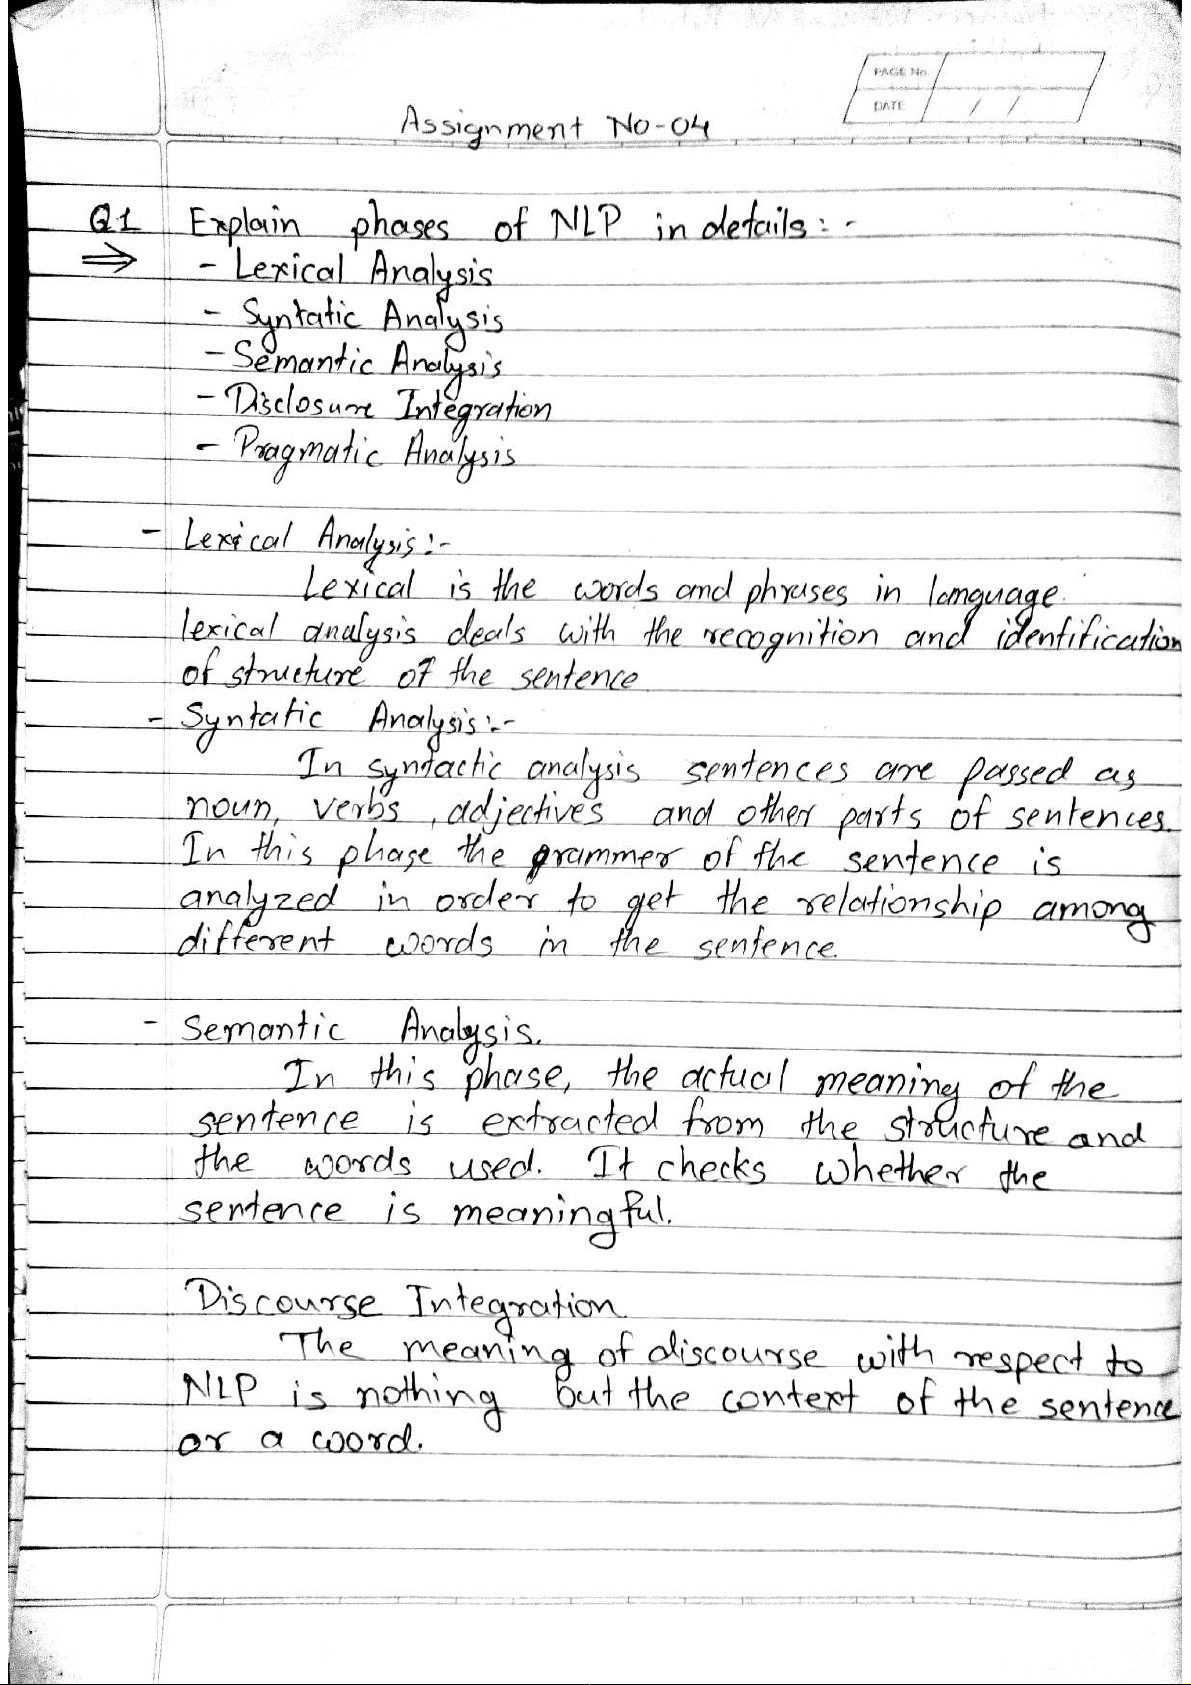 PAGE No.
DATE / /
Assignment No-04
Q1 Explain phases of NLP in details:-
⇒ - Lexical Analysis
- Syntatic Analysis
- Semantic Analysis
- Disclosure Integration
- Pragmatic Analysis
- Lexical Analysis:-
Lexical is the words and phrases in language.
lexical analysis deals with the recognition and identification
of structure of the sentence
- Syntatic Analysis:-
In syntactic analysis sentences are passed as
noun, verbs, adjectives and other parts of sentences.
In this phase the grammer of the sentence is
analyzed in order to get the relationship among
different words in the sentence.
- Semantic Analysis.
In this phase, the actual meaning of the
sentence is extracted from the structure and
the words used. It checks whether the
sentence is meaningful.
Discourse Integration
The meaning of discourse with respect to
NLP is nothing but the context of the sentence
or a word.